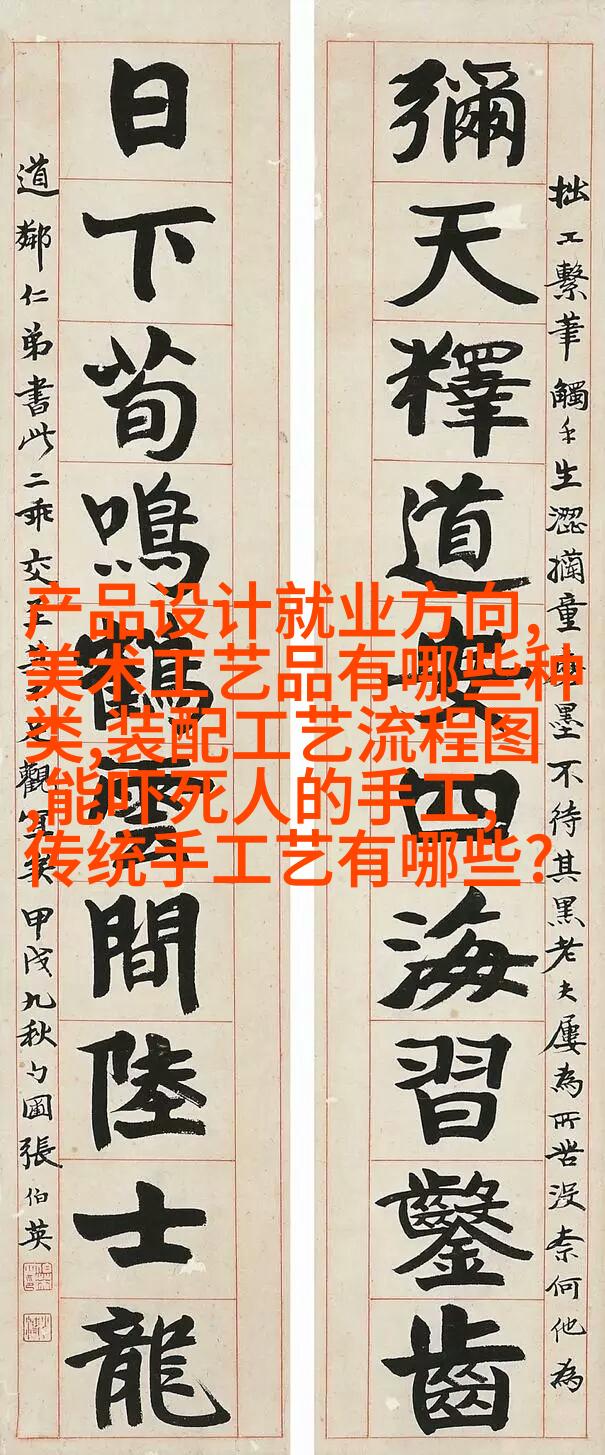 拙工繫筆觸手生澀童墨不待其黑老夫屢為所苦沒柰何他為
彌天釋道安四海習鑿齒
日下荀鳴鶴雲間陸士龍
道鄰仁弟書此二乖交至書觀矣甲戌九秋勺圃張伯英
产品设计就业方向,
美术工艺品有哪些种
类,装配工艺流程图
,能吓死人的手工,
传统手工艺有哪些?